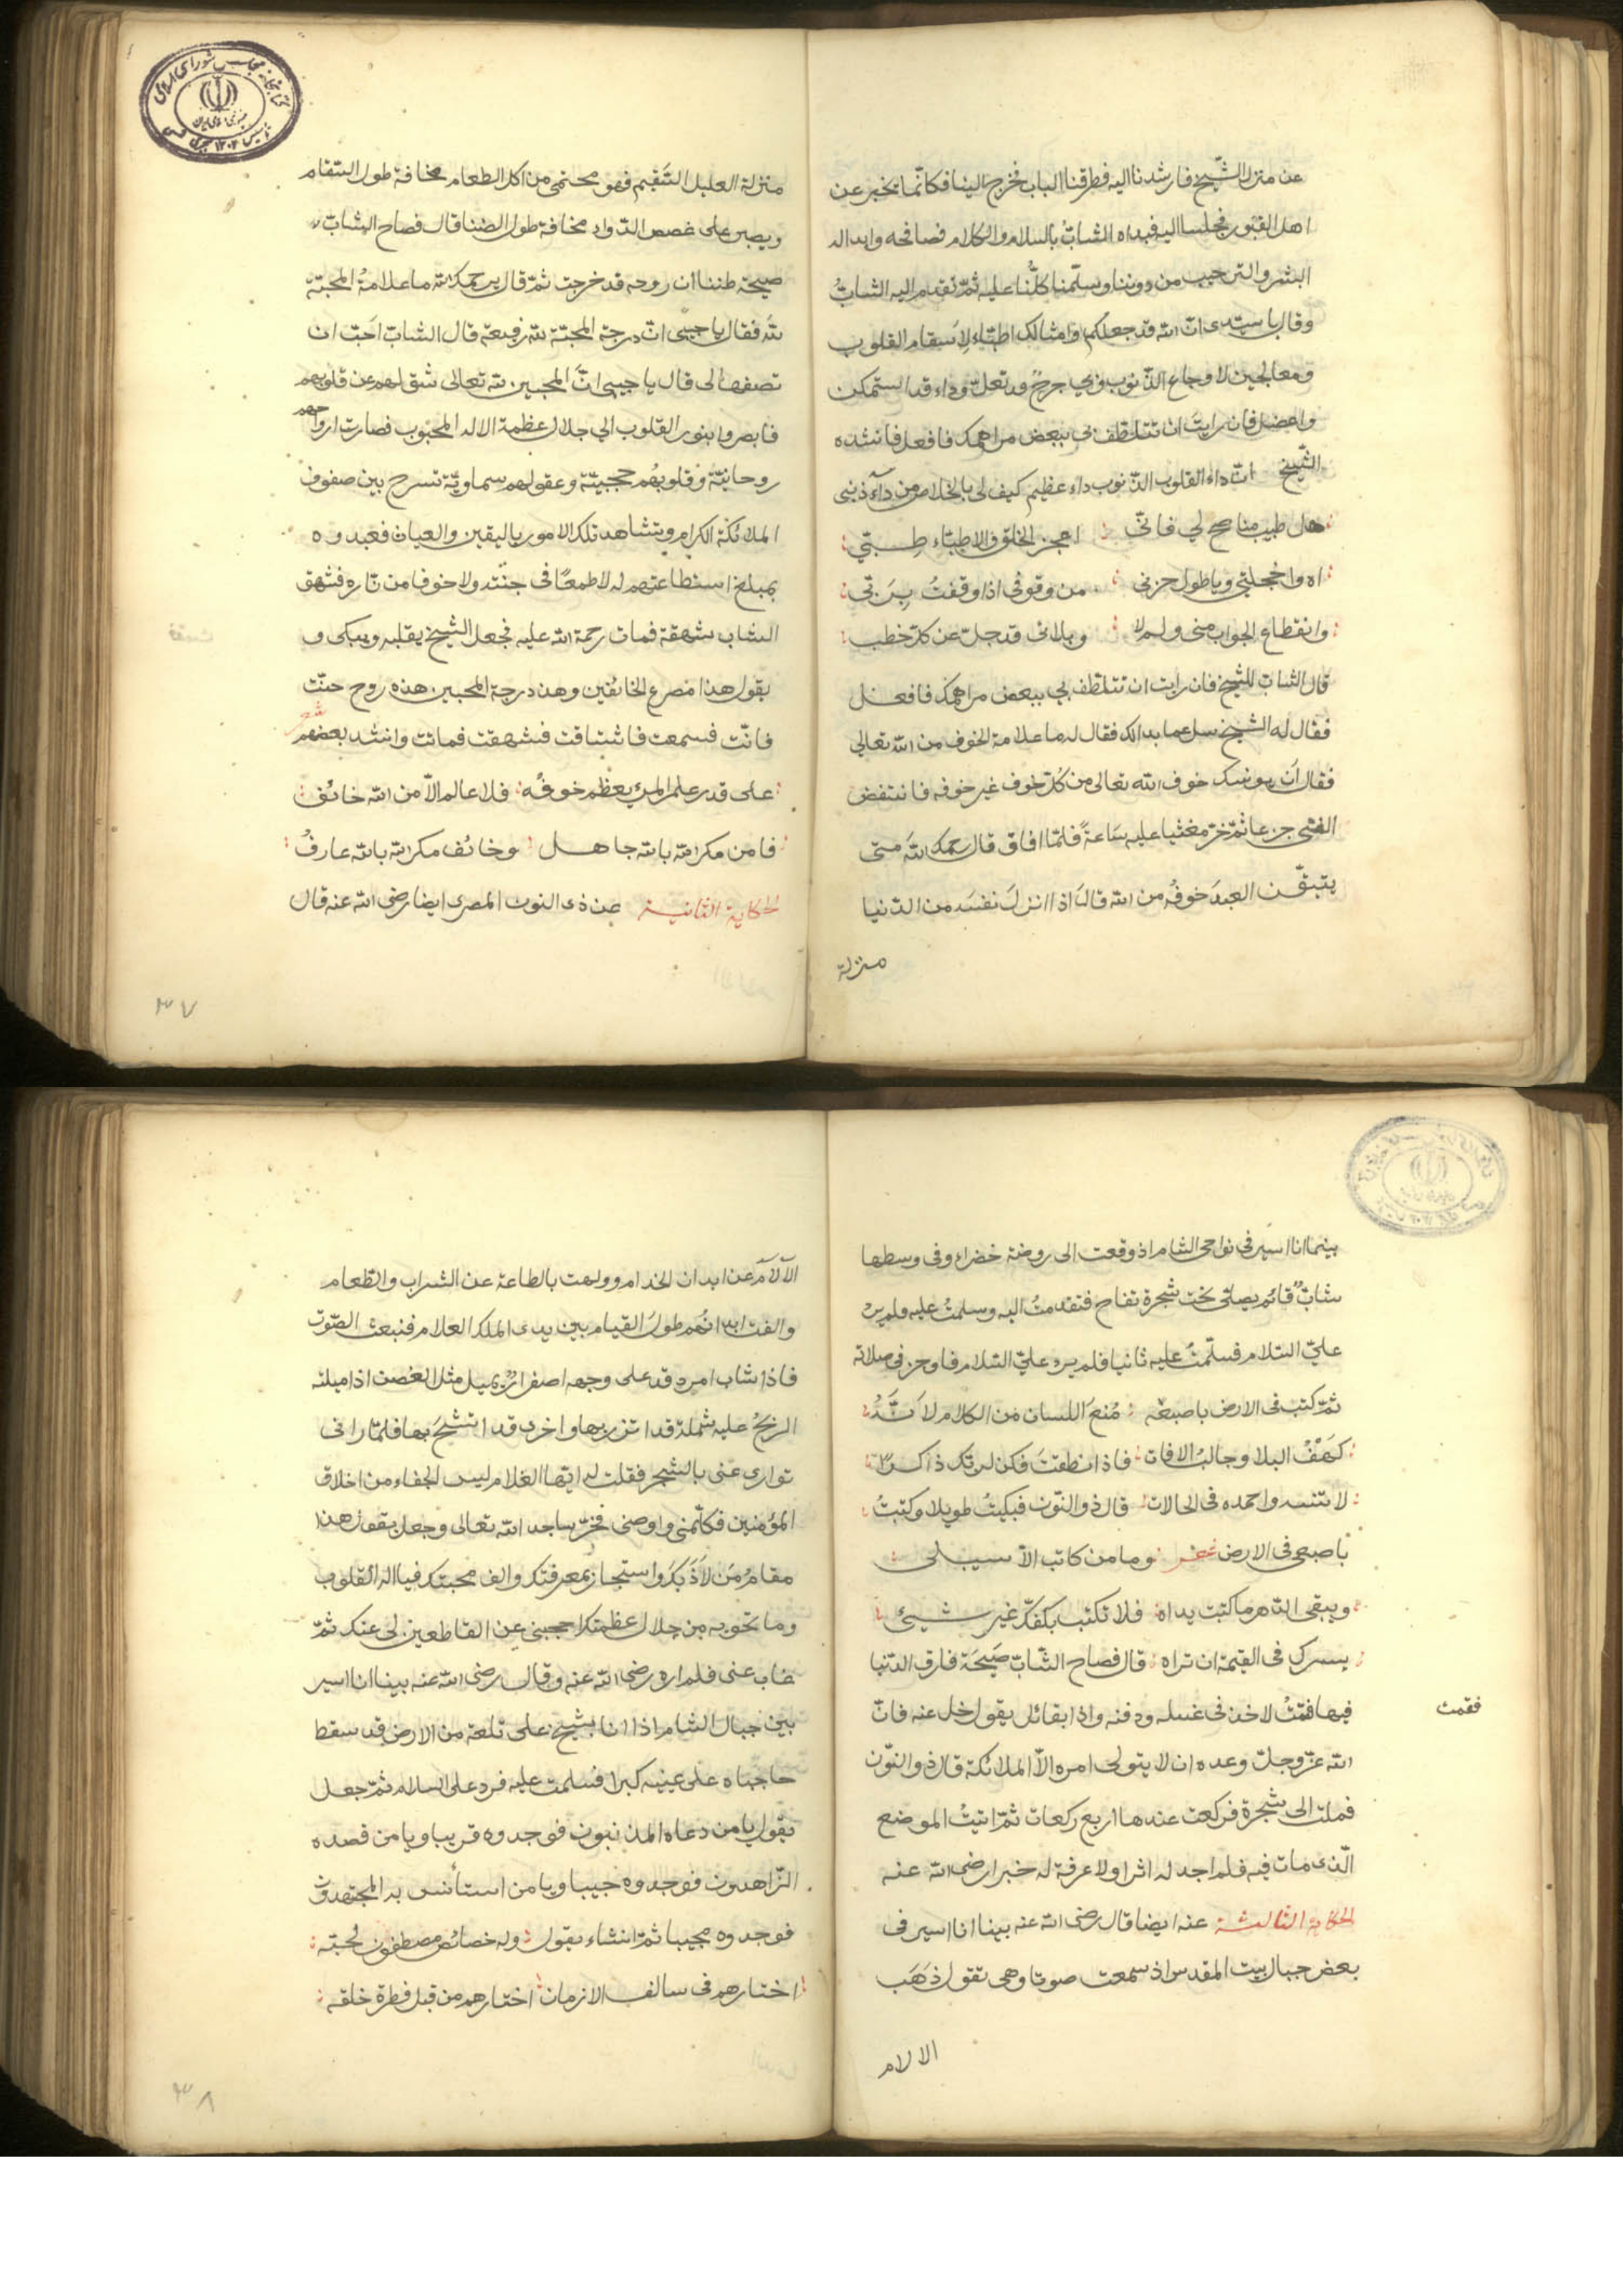 عن منزل الشّيخ فارشدنا اليه فطرقنا الباب فخرج الينا فكانّما يخبر عن
اهل القبور فجلسنا اليه فبداه الشابُّ بالسلام والكلام فصافحه وابدا له
البشر والترحيب من دوننا وسلّمنا كلّنا عليه ثمّ تقدم اليه الشابُّ
وقال يا سيّدى انّ الله قد جعلكم وامثالك اطبّاء لاَسقام القلوب
ومعالجين لاوجاع الذّنوب وبي جرحٌ قد تعلّ وداء قد استمكن
واعضل فان رايتَ ان تتلطّف بي ببعض مراهمك فافعل فانشده
الشّيخ انّ داء القلوب الذّنوب داء عظيم كيف لى بالخلاص من دآء ذنبى
هل طبيب مناصح لي فانّى اعجز الخلق والاطبّاء طبّتي
اه واخجلتي ويا طول حزنى من وقوفى اذا وقفتُ بِرَبّى
وانقطاع الجواب منى ولم لا وبلائى قد جلّ عن كلّ خطب
قال الشابّ للشيخ فان رايت ان تتلطّف بي ببعض مراهمك فافعل
فقال له الشيخ سل عما بدا لك فقال له ما علامة الخوف من الله تعالى
فقال اَن يونسك خوف الله تعالى من كُلّ خوف غير خوفه فانتفض
الفتى جزعا ثمّ خرّ مغشيا عليه ساعةً فلمّا افاق قال رحمك الله متى
يتيقّن العبدَ خوفُه من الله قال اذا انزل نفسَه من الدّنيا
منزلة
منزلة العليل السّقيم فهو محتمى من اكل الطعام مخافة طول السّقام
ويصبر على غصص الدّواء مخافة طول الضنا قال فصاح الشابّ
صيحة ظننا ان روحه قد خرجت ثمّ قال يرحمك الله ما علامةُ المحبّة
لله فقال يا حبيبى انّ درجة المحبّة لله رفيعة قال الشابّ احبّ ان
تصفها لى قال يا حبيبى انّ المحبين لله تعالى شق لهم عن قلوبهم
فابصروا بنور القلوب الى جلال عظمة الاله المحبوب فصارت ارواحهم
روحانيّة وقلوبُهم حجبيّة وعقولهم سماويّة تسرح بين صفوف
الملائكة الكرام وتشاهد تلك الامور باليقين والعيان فعبدوه
بمبلغ استطاعتهم له لا طمعًا فى جنّته ولا خوفا من نّاره فشهق
الشاب شهقة فمات رحمة الله عليه فجعل الشيخ يقلبه ويبكى و
يقول هذا مصرع الخائفين وهذه درجة المحبين هذه روح حنّت
فانّت فسمعت فاشتاقت فشهقت فماتت وانشد بعضهم شعر
على قدر علم المرء يعظُم خوفُه فلا عالم الاّ من الله خائف
فامن مكر الله بالله جاهل وخائف مكر الله بالله عارفُ
الحكاية الثانية عن ذى النون المصرى ايضا رضى الله عنه قال
٣٧
بينما انا اسير فى نواحى الشام اذ وقعت الى روضة خضراء وفى وسطها
شابٌّ قائم يصلّى تحت شجرة تفاح فتقدمتُ اليه وسلمتُ عليه ولم يرد
علىّ السّلام فسلّمتُ عليه ثانيا فلم يرد علىّ السّلام فاوجز فى صلاته
ثمّ كتب فى الارض باصبعه مُنع اللسان من الكلام لاَنّهُ
كهف البلا وجالبُ الافات فاذا نطقتَ فكن لربّك ذاكرًا
لا تنسه واحمده فى الحالات قال ذو النّون فبكيتُ طويلا وكتبتُ
باصبعى فى الارض شعر وما من كاتب الاّ سيبلى
ويبقى الدّهر ما كتبت يداه فلا تكتب بكفّك غير شيئ
يسرك فى القيمة ان تراه قال فصاح الشّابّ صيحَة فارق الدّنيا
فيها فقمتُ لاخذ فى غسله ودفنه واذا بقائل يقول خل عنه فانّ
فقمت
الله عزّ وجلّ وعده ان لا يتولى امره الاّ الملائكة قال ذو النّون
فملت الى شجرة فركعت عندها اربع ركعات ثمّ اتيتُ الموضع
الّذى مات فيه فلم اجد له اثرا ولا عرفة له خبرا رضى الله عنه
الحكاية الثالثة عنه ايضا قال رضى الله عنه بينا انا اسير فى
بعض جبال بيت المقدس اذ سمعت صوتا وهى تقول ذهَبَ
الالام
الآلآم عن ابدان الخدام وولهت بالطاعة عن الشراب والطّعام
والفت ابدانُهم طولَ القيام بين يدى الملك العلام فتبعتُ الصّوت
فاذا شاب امرد قد على وجهه اصفرارٌ يميل مثل الغُصن اذا ميلته
الريحُ عليه شملة قد اتزر بها واخرى قد اتشح بها فلمّا رانى
توارى عنى بالشجر فقلت له ايّها الغلام ليس الجفاء من اخلاق
المؤمنين فكلّمنى واوصنى فخرّ ساجد الله تعالى وجعل يقول هذا
مقامُ مَن لاَذَ بِكَ واستجار بمعرفتك والف محبتك فيا اله القلوب
وما تحويه من جلال عظمتك احجبنى عن القاطعين لى عنك ثمّ
غاب عنى فلم اره رضى الله عنه وقال رضى الله عنه بينا انا اسير
بين جبال الشام اذا انا بشيخ على تلعة من الارض قد سقط
حاجباه على عينيه كبرا فسلمت عليه فرد على السلام ثمّ جعل
يقول يا من دعاه المذنبون فوجدوه قريبا ويا من قصده
الزّاهدون فوجدوه حبيبا ويا من استأنس به المجتهدون
فوجدوه مجيبا ثمّ انشاء يقول وله خصائص مصطفون لحبّه
اختارهم فى سالف الازمان اختارهم من قبل فطرة خلقه
٣٨